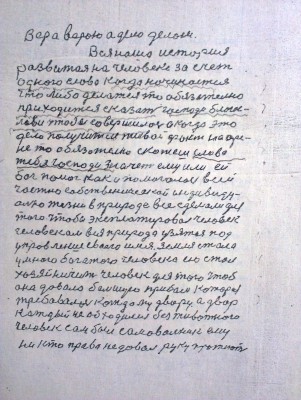 Вера верою а дело делом.
Вся наша история
развитая на человек за счет
одного слова когда начинается
что либо делается то обязателно
приходится сказат господи благос-
лави чтобы совершилос а когда это
дело получится
не то обязателно скажеш слава
тебе господи значет ему или ей
бог помог как и помогал во всей
частно собственической индивиду-
алю жизни в природе все сделано для
того чтобы эксплатировал человек
человеком вся природа узятая под
управление своего имя. Земля стала
умного богатого человека ею стал
хозяйничит человек для того чтоб
она довала большую прибыл которая
требавалас каждому двору. а двор
каждый не обходился без животного
человек сам был самоволник ему
ни кто права не довал руку